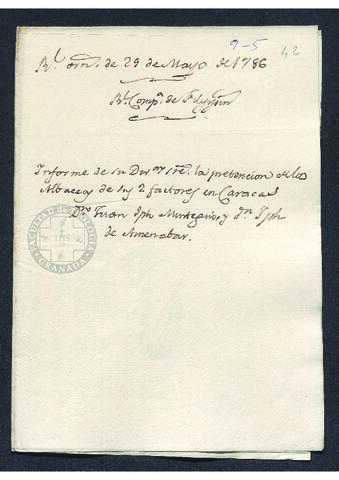 9-5 42
Rl. orn. de 29 de Mayo de 1786
Rl. Compa. de
Informe de su Dor. sre. la pretencion de los
Albaceas de sus 2 factores en Caracas
Dn. Juan Jph y Dn. Jph
de Amenabar.
FACULTAD DE TEOLOGIA
GRANADA